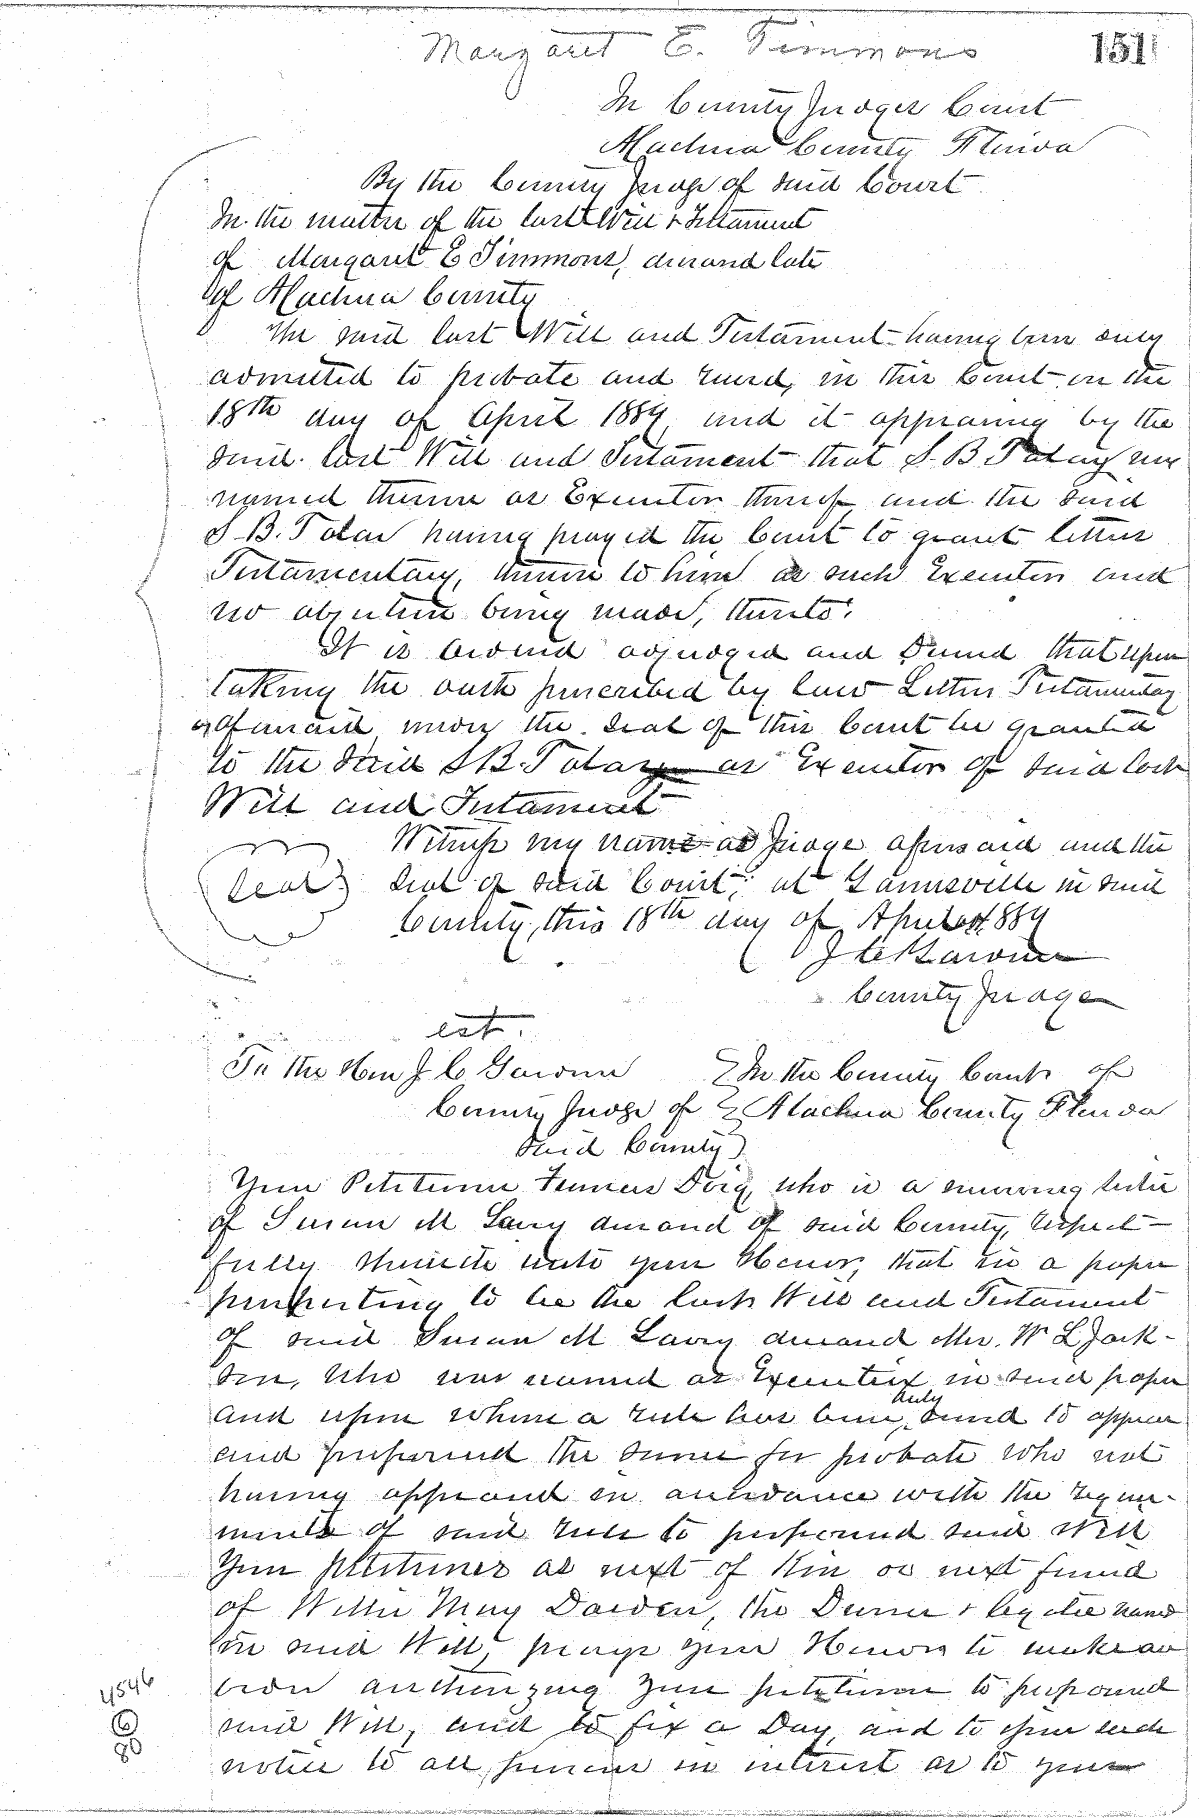 Margaret E. Timmons
151
In County Judges Court
Alachua County Florida
By the County Judge of said Court
In the matter of the last Will & Testament
of Margaret E Timmons, deceased late
of Alachua County
The said last Will and Testament having been duly
admitted to probate and record, in this Court on the
18th day of April 1889, and it appearing by the
said last Will and Testament that S. B. Tolar was
named therein as Executor thereof, and the said
S. B. Tolar having prayed the Court to grant letters
Testamentary, thereon to him as such Executor and
no objection being made, thereto:
It is ordered adjudged and Decreed that upon
taking the oath prescribed by law Letters Testamentary
aforesaid, under the seal of this Court be granted
to the said S B. Tolar as Executor of said last
Will and Testament
Witness my name as Judge aforesaid and the
Seal
seal of said Court, at Gainesville in said
County, this 18th day of April 1889
J C Gardner
County Judge
est.
To the Hon J C Gardner In the County Court of
County Judge of Alachua County Florida
said County
Your Petitioner Doig, who is a surviving sister
of Susan M deceased of said County, respect-
fully unto your Honor, that in a paper
purporting to be the last Will and Testament
of said Susan M deceased Mr. W L Jack-
son, who was named as Executrix in said paper
duly
and upon whom a rule has been, served to appear
and propound the same for probate who not
having appeared in accordance with the require-
ments of said rule to propound said Will
Your petitioner as next of Kin or next friend
of Willie May Dowden, the Devisee & legatee named
in said Will, prays your Honor to make an
order authorizing your petitioner to propound
said Will, and to fix a Day, and to give such
notice to all persons in interest as to your
4546
6
80